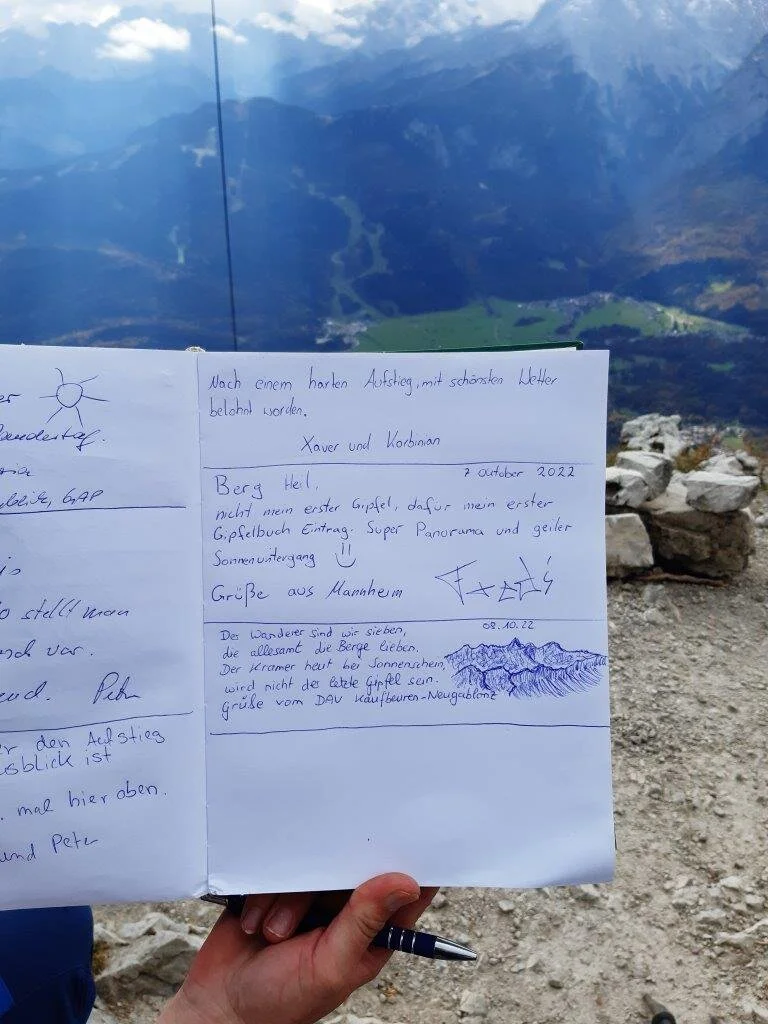 Wandertag.
GAP
stellt man
war.
Peter
den Aufstieg
ist
mal hier oben.
und Peter
Nach einem harten Aufstieg, mit schönsten Wetter
belohnt worden.
Xaver und Korbinian
7 October 2022
Berg Heil,
nicht mein erster Gipfel, dafür mein erster
Gipfelbuch Eintrag. Super Panorama und geiler
Sonnenuntergang
Grüße aus Mannheim
08.10.22
Der Wanderer sind wir sieben,
die allesamt die Berge lieben.
Der Kramer heut bei Sonnenschein,
wird nicht der letzte Gipfel sein.
Grüße vom DAV Kaufbeuren-Neugablonz